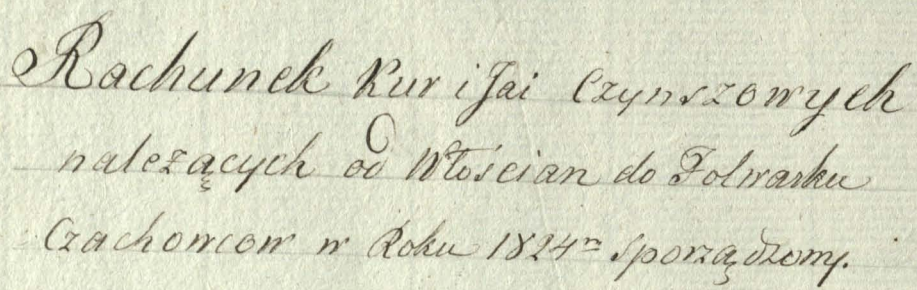 Rachunek Kur i Jai Czynszowych
należących od Włościan do Folwarku
Czachowcow w Roku 1824m sporządzony.